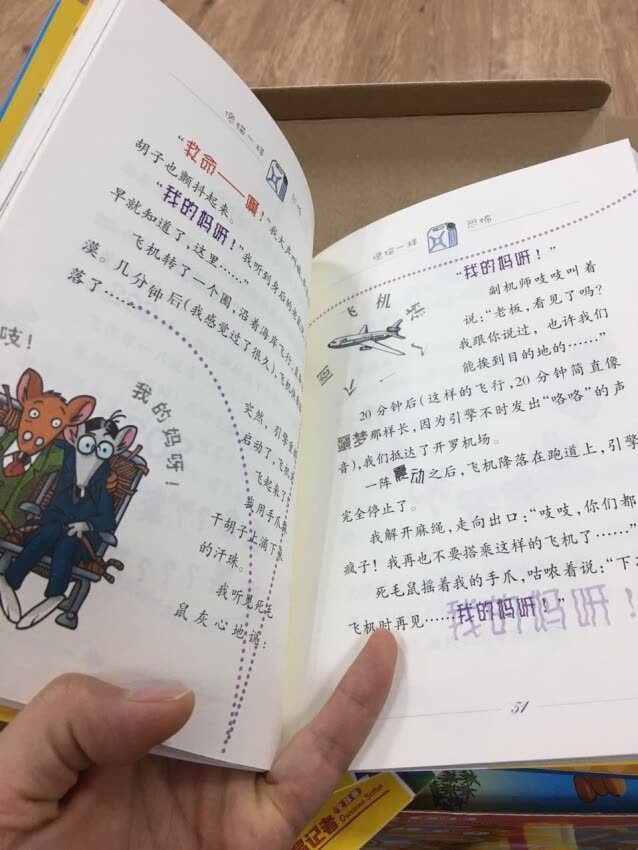 像猫一样
恐怖
“救命——啊！”我大声叫
胡子也颤抖起来。
“我的妈呀！”我听到身后的
早就知道，这里……”
飞机转了一个圈，沿着海岸飞行，
漠。几分钟后（我感觉过了很久），飞机
落了……
吱！
我的妈呀！
突然，引擎
启动了，飞机
飞起来了
我用手爪
干胡子上滴下来
的汗珠。
我听见死毛
鼠灰心地说：
像猫一样
恐怖
“我的妈呀！”
飞机
副机师吱吱叫着
说：“老板，看见了吗？
我跟你说过，也许我们
能挨到目的地的……”
20分钟后（这样的飞行，20分钟简直像
噩梦那样长，因为引擎不时发出“咯咯”的声
音），我们抵达了开罗机场。
一阵震动之后，飞机降落在跑道上，引擎
完全停止了。
我解开麻绳，走向出口：“吱吱，你们都
疯子！我再也不要搭乘这样的飞机了……”
死毛鼠摇着我的手爪，咕哝着说：“下
飞机时再见……我的妈呀！”
51
记者
全球版
Geronimo Stilton